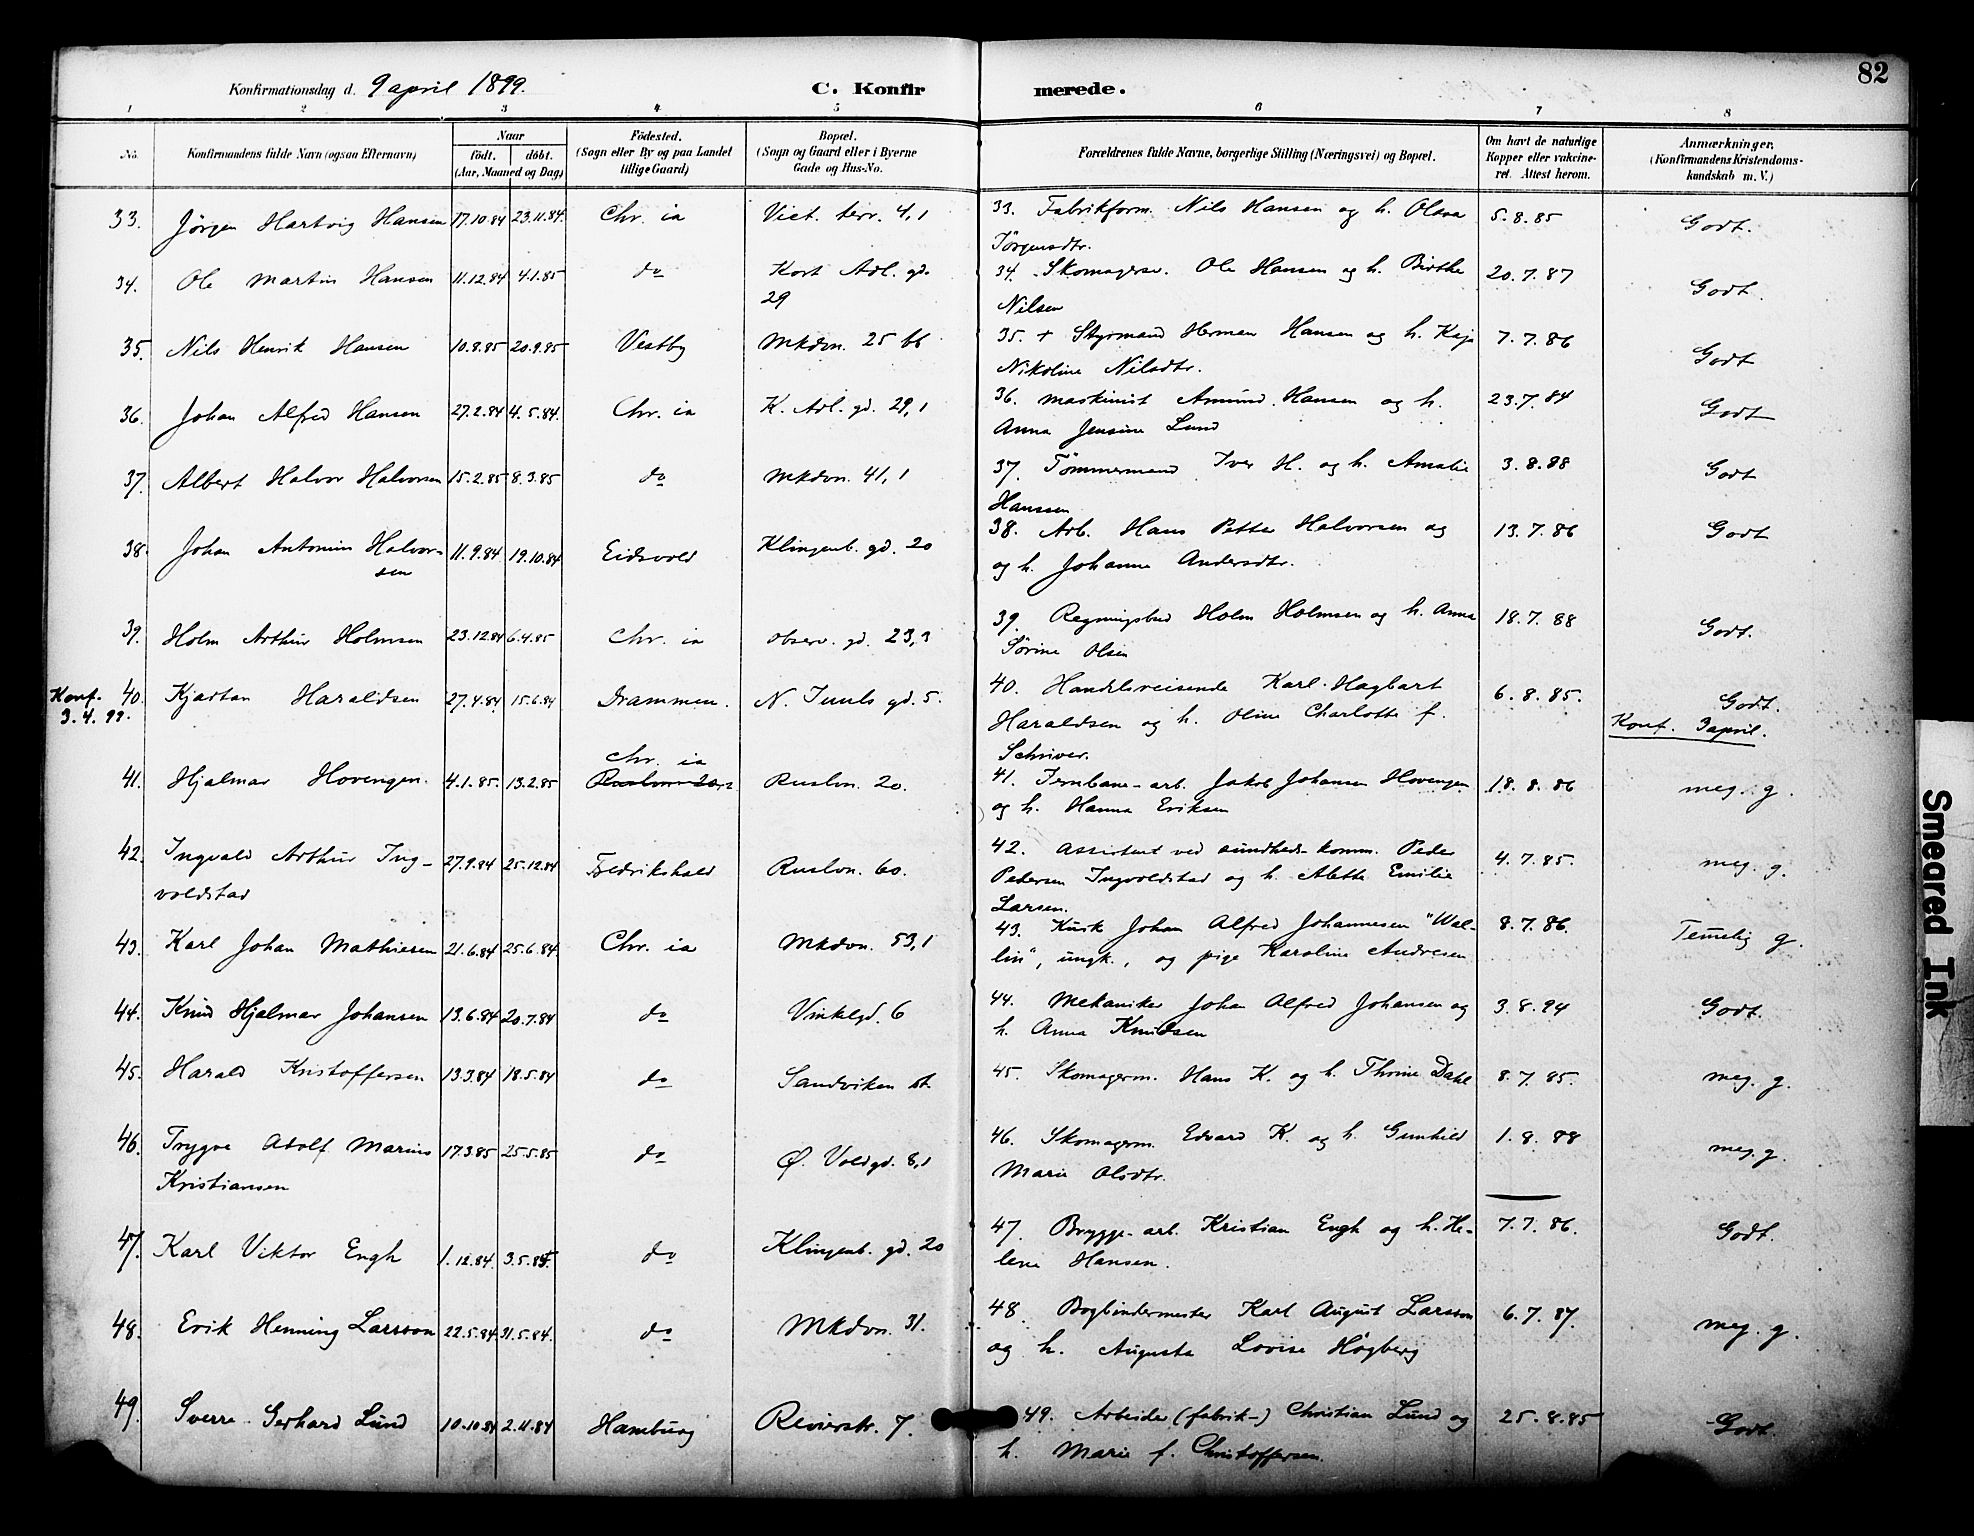 82
Konfirmationsdag d. 9 april 1899.
C. Konfirmerede.
1 2 3 4 5 6 7 8
No.
Konfirmandens fulde Navn (ogsaa Efternavn)
Naar
födt. döbt.
(Aar, Maaned og Dag)
Födested.
(Sogn eller By og paa Landet
tillige Gaard)
Bopæl.
(Sogn og Gaard eller i Byerne
Gade og Hus-No.
Forældrenes fulde Navne, borgerlige Stilling (Næringsvei) og Bopæl.
Om havt de naturlige
Kopper eller vakcine-
ret. Attest herom.
Anmærkninger,
(Konfirmandens Kristendoms-
kundskab m. V.)
33. Jörgen Hartvig Hansen 17.10.84 23.11.84. Chr. ia Vict. terr. 4,1 33. Fabrikform. Nils Hansen og h. Olava 5.8.85 Godt.
Jörgensdtr.
34. Ole Martin Hansen 11.12.84 4.1.85 do Kort Adl. gd. 34. Skomagersv. Ole Hansen og h. Birthe 20.7.87 Godt.
29 Nilsen
35. Nils Henrik Hansen 10.8.85 20.9.85 Vestby Mkdvn. 25 b6 35. + Styrmand Herman Hansen og h. Kaja 7.7.86 Godt
Nikoline Nilsdtr.
36. Johan Alfred Hansen 27.2.84 4.5.84. Chr. ia K. Adl. gd. 29,1 36. Maskinist Amund Hansen og h. 23.7.84 Godt
Anna Jensine Lund
37. Albert Halvor Halvorsen 15.2.85 8.3.85 do Mkdvn. 41,1 37. Tömmermand Iver H. og h. Amalie 3.8.88 Godt
Hanssen
38. Johan Antonius Halvor- 11.9.84 19.10.84 Eidsvold Klingenb. gd. 20 38. Arb. Hans Petter Halvorsen og 13.7.86 Godt
sen og h. Johanne Andersdtr.
39. Holm Arthur Holmsen 23.12.84 6.4.85 Chr. ia Observ. gd. 23,3 39. Regningsbud Holm Holmsen og h. Anna 18.7.88 Godt.
Sörine Olsen
Konf. 3.4.99. 40. Kjartan Haraldsen 27.4.84 15.6.84 Drammen. N. Juuls gd. 5. 40. Handelsreisende Karl Hagbart 6.8.85. Godt.
Haraldsen og h. Oline Charlotte f. Konf. 3 april.
Schriver.
41. Hjalmar Hovengen. 4.1.85. 13.2.85 Chr. ia Ruslvn. 20. 41. Jernbane-arb. Jakob Johansen Hovengen 18.8.86 meg. g.
og h. Hanna Eriksen
42. Ingvald Arthur Ing- 27.9.84 25.12.84 Fredrikshald Ruslvn. 60. 42. Assistent ved sundheds-komm. Peder 4.7.85. meg. g.
voldstad Pedersen Ingvoldstad og h. Alette Emilie
Larsen.
43. Karl Johan Mathiesen 21.6.84 25.6.84 Chr. ia Mkdvn. 53,1 43. Kusk Johan Alfred Johannesen "Wal- 8.7.86. Temelig g.
lin", ungk., og pige Karoline Andresen
44. Knud Hjalmar Johansen 13.6.84 20.7.84 do Vinkelgd. 6 44. Mekaniker Johan Alfred Johansen og 3.8.94 Godt.
h. Anna Knudsen
45. Harald Kristoffersen 13.3.84 18.5.84 do Sandviken st. 45. Skomagerm. Hans K. og h. Thrine Dahl 8.7.85. meg. g.
46. Trygve Adolf Marius 17.3.85 25.5.85 do Ø. Voldgd. 8,1 46. Skomagerm. Edvard K. og h. Gunhild 1.8.88 meg. g.
Kristiansen Marie Olsdtr.
47. Karl Viktor Engh 1.12.84. 3.5.85. do Klingenb. gd. 20 47. Brygge-arb. Kristian Engh og h. He- 7.7.86. Godt.
lene Hansen.
48. Erik Henning Larsson 22.5.84 31.5.84. do Mkdvn. 31. 48. Bogbindermester Karl August Larsson 6.7.87. meg. g.
og h. Augusta Lovise Högberg
49. Sverre Gerhard Lund 10.10.84 2.11.84 Hamburg Revierstr. 7. 49. Arbeider (fabrik-) Christian Lund og 25.8.85 Godt.
h. Marie f. Christoffersen.
Smeared Ink